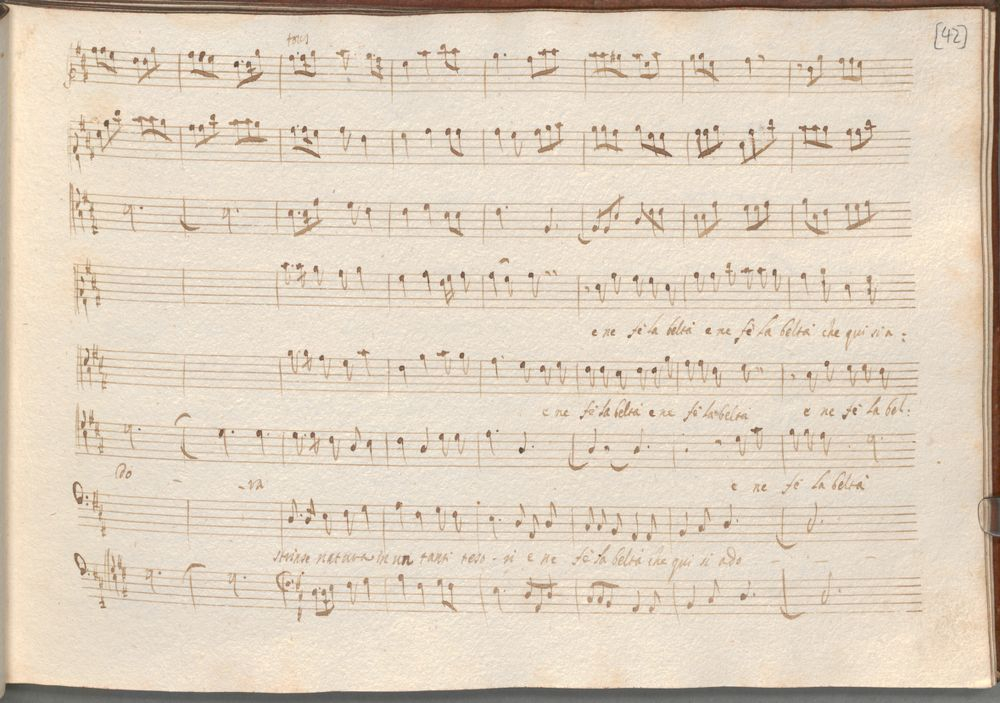 [42]
tous
e ne fé la beltà e ne fé la beltà che qui si a:
e ne fé la beltà e ne fé la beltà e ne fé la bel:
do - - va e ne fé la beltà
strinse natura in un tanti teso - ri e ne fé la beltà che qui si ado - - -